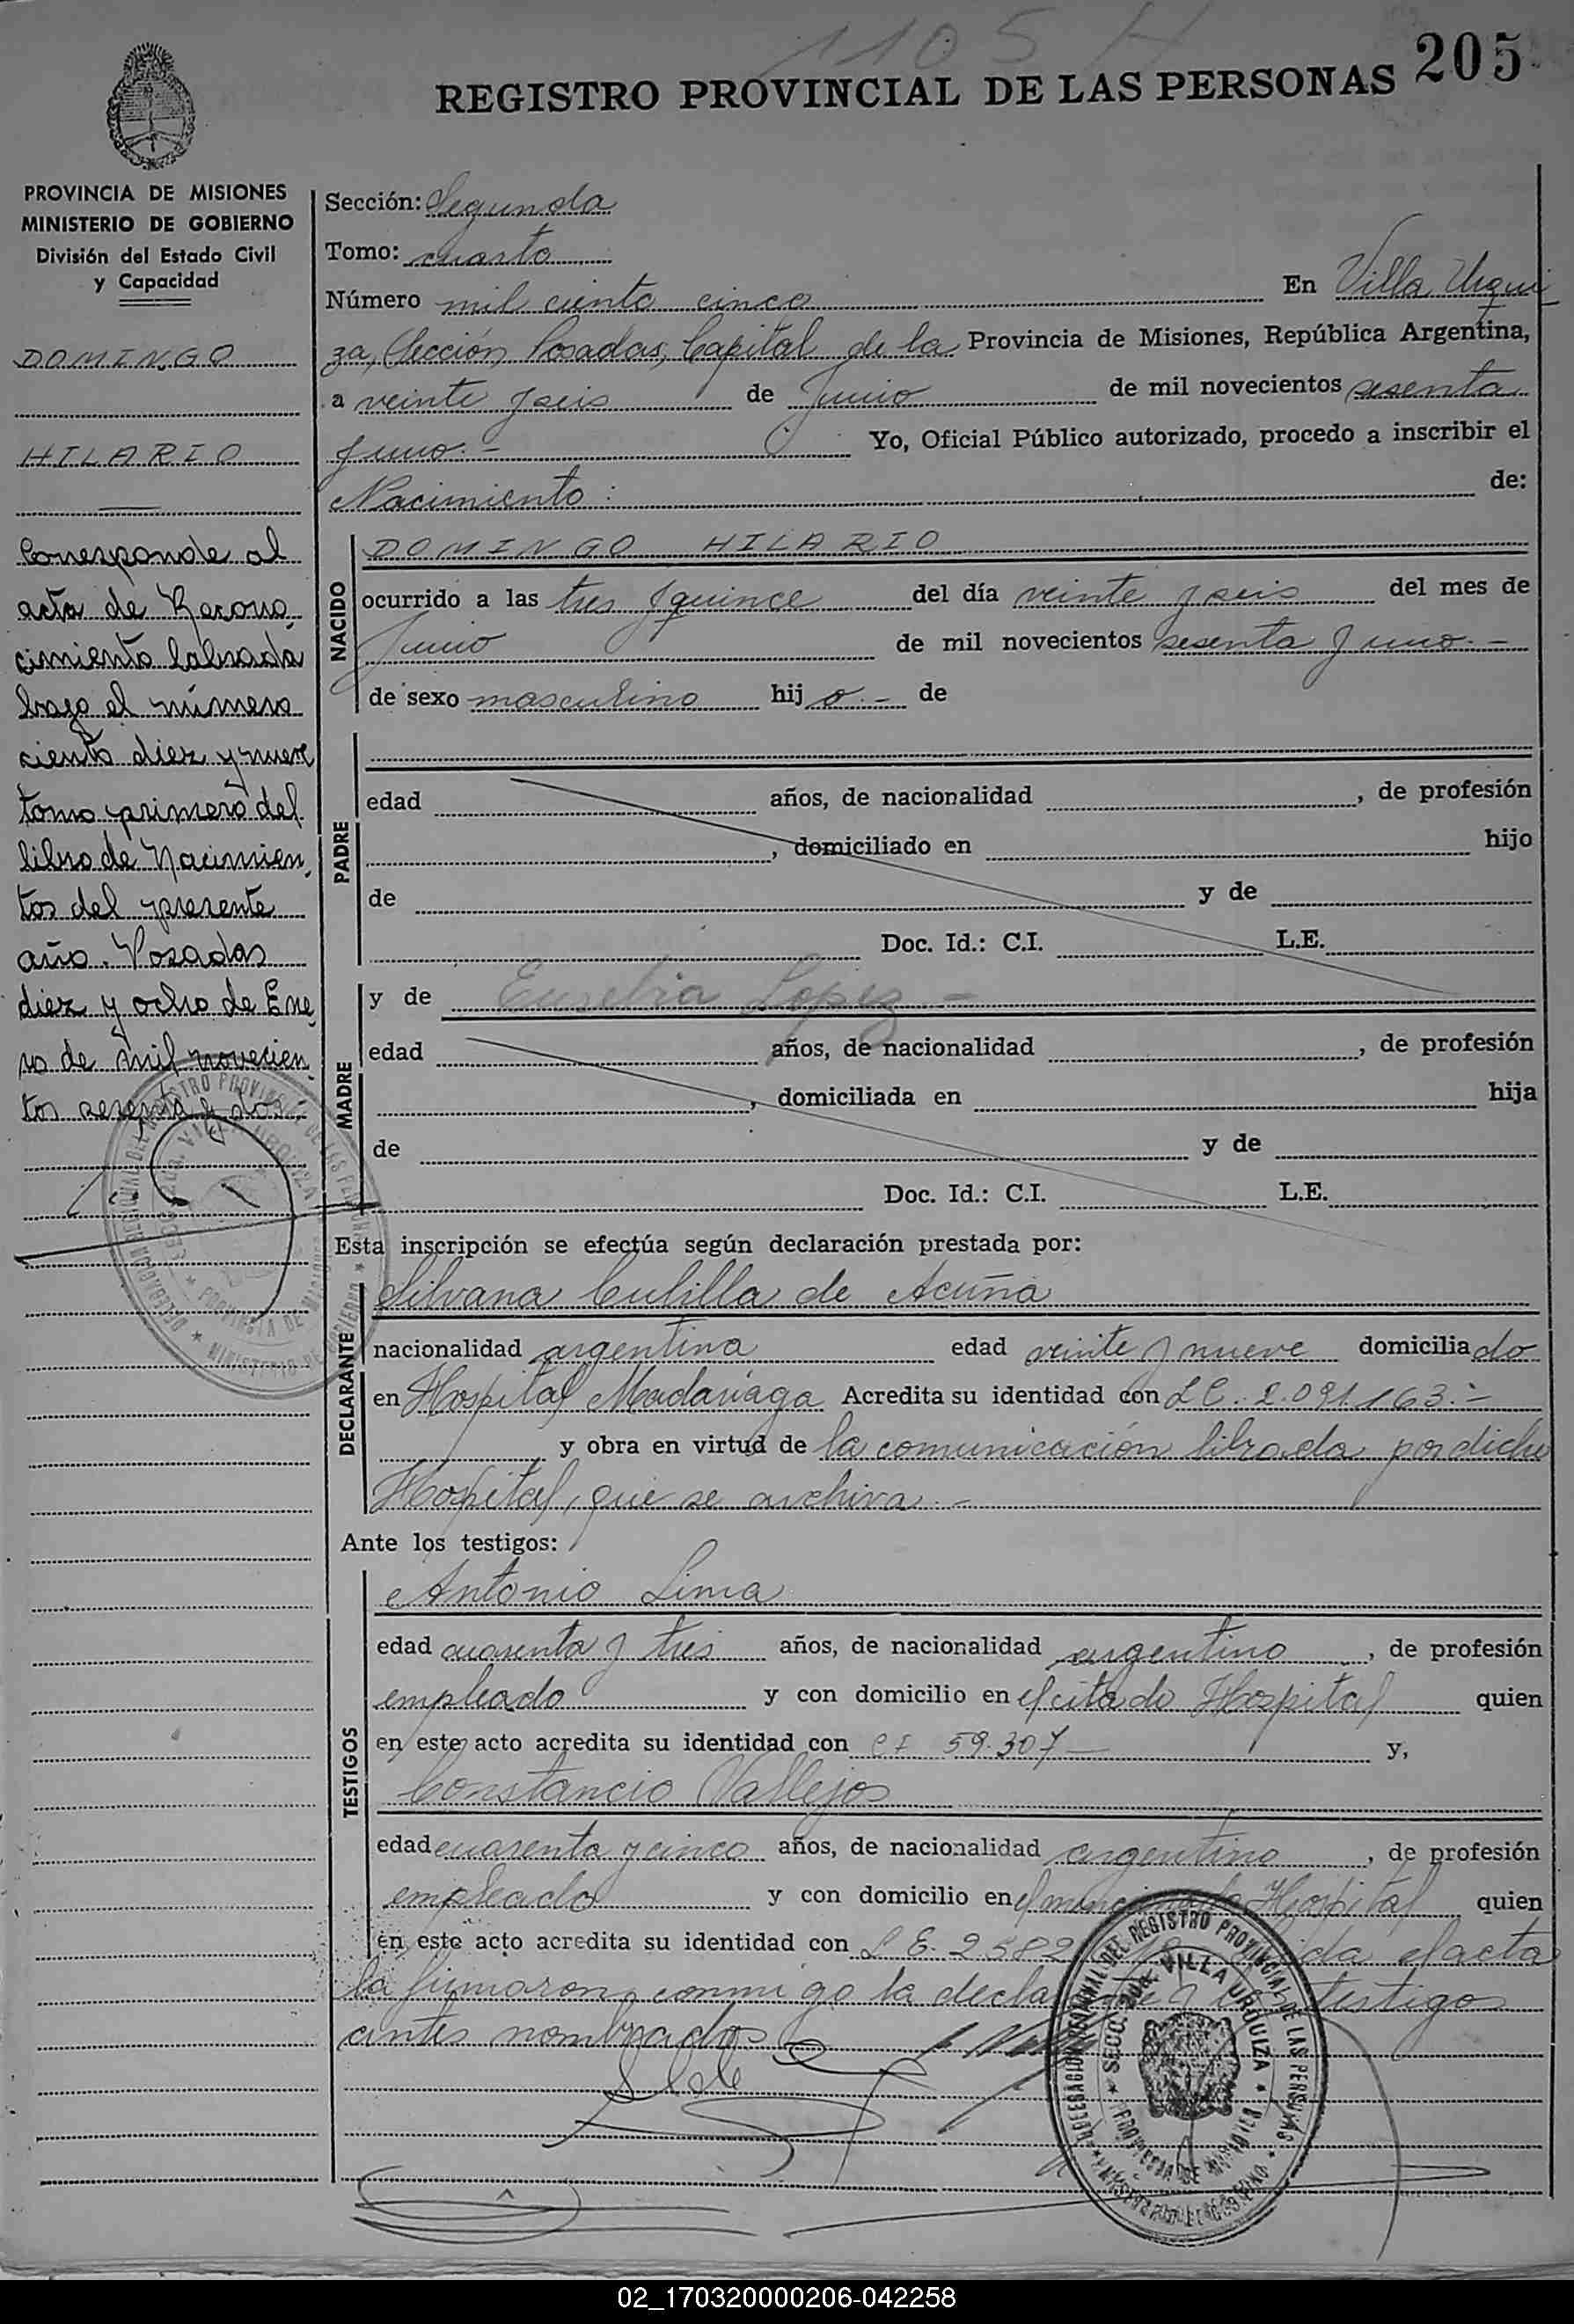 1105 H
205
REGISTRO PROVINCIAL DE LAS PERSONAS
PROVINCIA DE MISIONES
MINISTERIO DE GOBIERNO
División del Estado Civil
y Capacidad
DOMINGO
HILARIO
Corresponde al
acta de Recono
cimiento labrada
bajo el número
ciento diez y nueve
tomo primero del
libro de Nacimien
tos del presente
año. Posadas
diez y ocho de Ene
ro de mil novecien
tos sesenta y dos
Sección: Segunda
Tomo: cuarto
Número mil ciento cinco En Villa Urqui
za, Sección, Posadas, Capital de la Provincia de Misiones, República Argentina,
a veinte y seis de Junio de mil novecientos sesenta
y uno.- Yo, Oficial Público autorizado, procedo a inscribir el
Nacimiento: de:
NACIDO
DOMINGO HILARIO
ocurrido a las tres y quince del día veinte y seis del mes de
Junio de mil novecientos sesenta y uno.-
de sexo masculino hijo.- de
PADRE
edad años, de nacionalidad , de profesión
, domiciliado en hijo
de y de
Doc. Id.: C.I. L.E.
MADRE
y de Euzebia Lopez -
edad años, de nacionalidad , de profesión
, domiciliada en hija
de y de
Doc. Id.: C.I. L.E.
Esta inscripción se efectúa según declaración prestada por:
DECLARANTE
Silvana Cubilla de Acuña
nacionalidad argentina edad veinte y nueve domiciliado
en Hospital Madariaga Acredita su identidad con LC. 2.091.163.-
y obra en virtud de la comunicación librada por dicho
Hospital, que se archiva.-
Ante los testigos:
TESTIGOS
Antonio Lima
edad cuarenta y tres años, de nacionalidad argentino , de profesión
empleado y con domicilio en el citado Hospital quien
en este acto acredita su identidad con CI 59.307- y,
Constancio Vallejos
edad cuarenta y cinco años, de nacionalidad argentino , de profesión
empleado y con domicilio en el Hospital quien
en este acto acredita su identidad con L E. 2582 el acta
la firmaron conmigo la testigos
antes nombrados
DELEGACION REGIONAL DEL REGISTRO PROVINCIAL DE LAS PERSONAS
SECC. 2da. VILLA URQUIZA
PROVINCIA DE MISIONES
MINISTERIO DE GOBIERNO
02_170320000206-042258